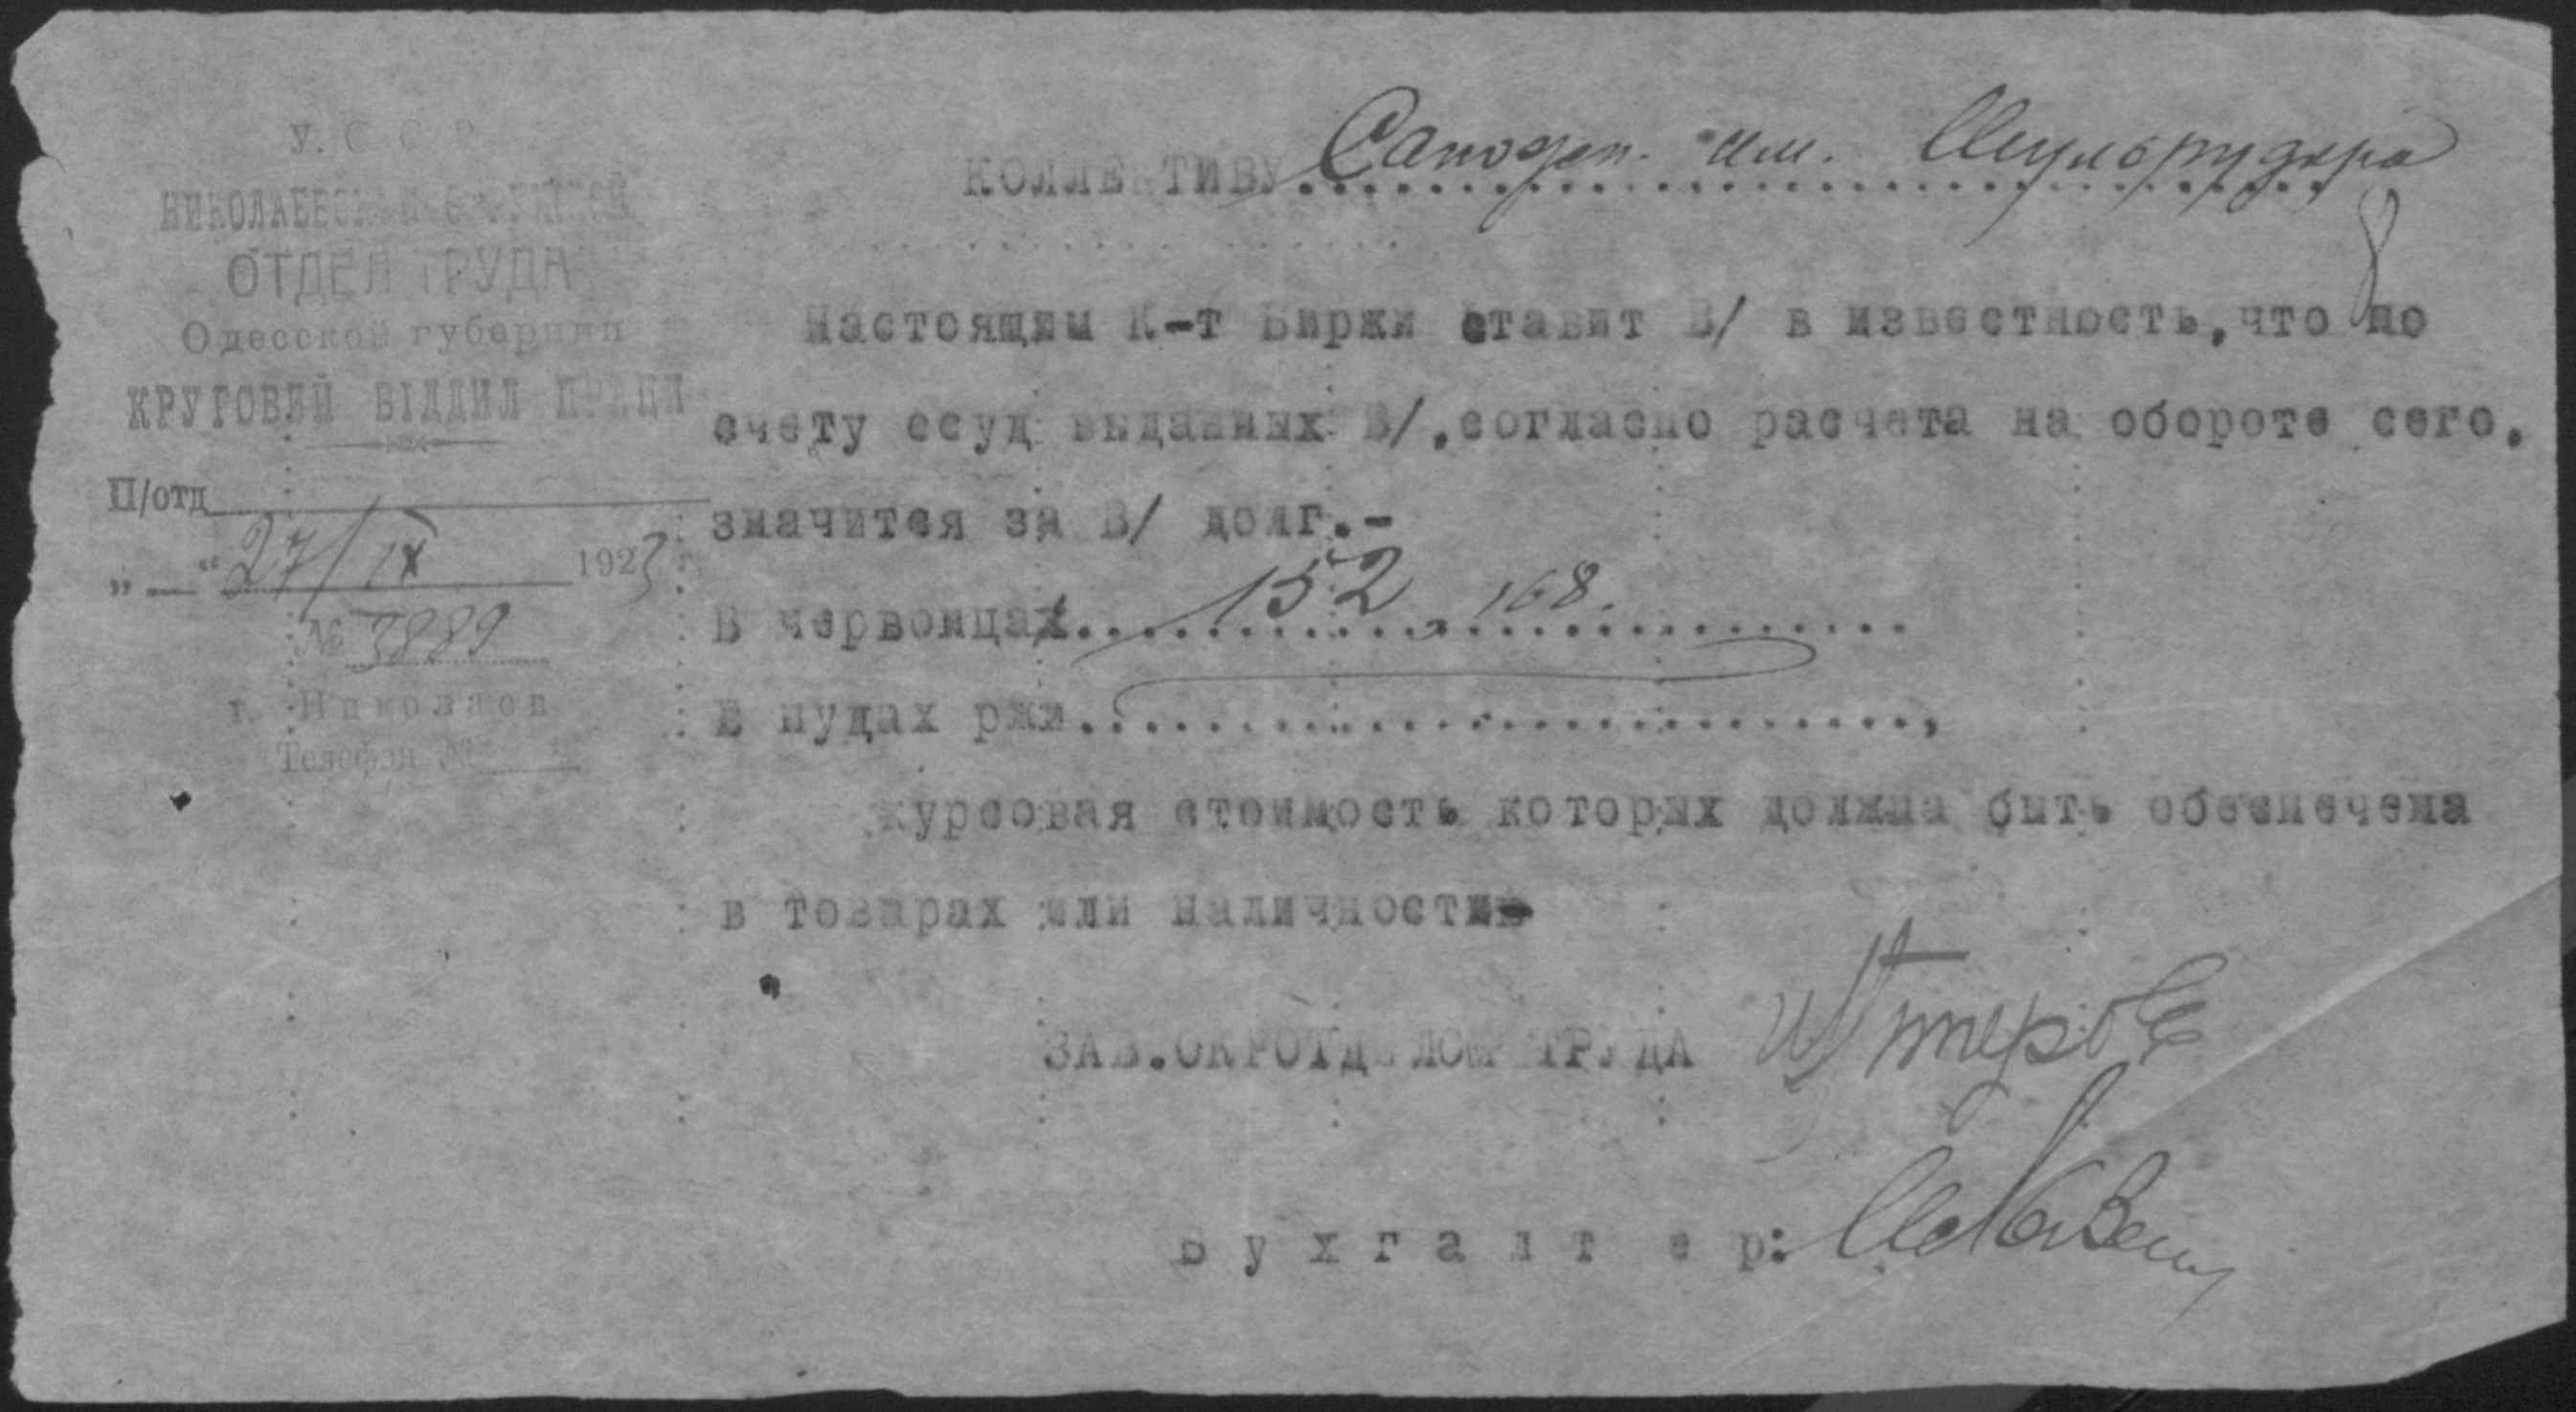 У. С С Р
НИКОЛАЕВСКИЙ ОКРУЖНОЙ
ОТДЕЛ ТРУДА
Одесской губернии
КРУГОВИЙ ВІДДИЛ ПРАЦИ
П/отд
„ — “ 27/IX 1923
№ 3889
г. Николаев
Телефон №
КОЛЛЕКТИВУ им.
8
Настоящим К-т Биржи ставит В/ в известность, что по
счету ссуд выданных В/, согласно расчета на обороте сего,
значится за В/ долг.-
В червонцах....152,168.....
В пудах ржи..........................,
курсовая стоимость которых должна быть обеспечена
в товарах или наличности-
ЗАВ.ОКРОТДЕЛОМ ТРУДА
Б у х г а л т е р: